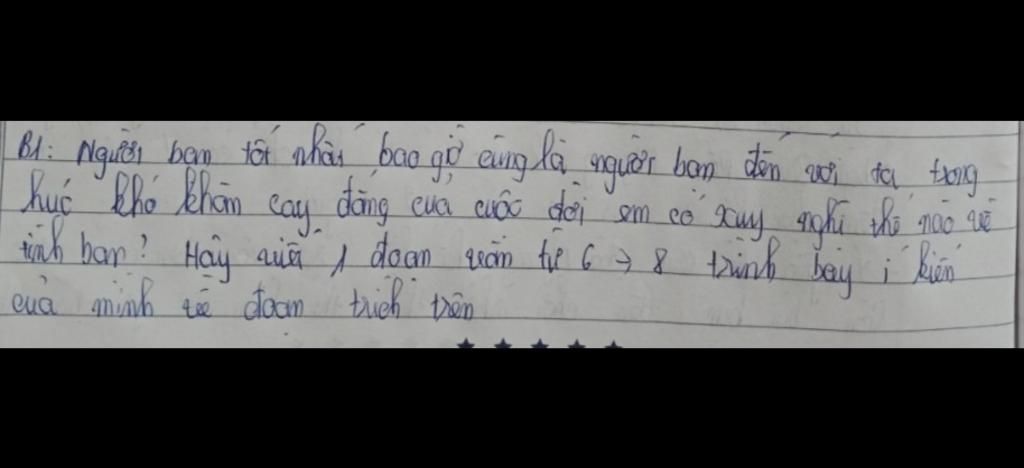 B1: Người bạn tốt nhất bao giờ cũng là người bạn đến với ta trong
lúc khó khăn cay đắng của cuộc đời em có xuy nghĩ thế nào về
tình bạn? Hãy viết 1 đoạn văn từ 6 → 8 trình bày í kiến
của mình về đoạn trích trên